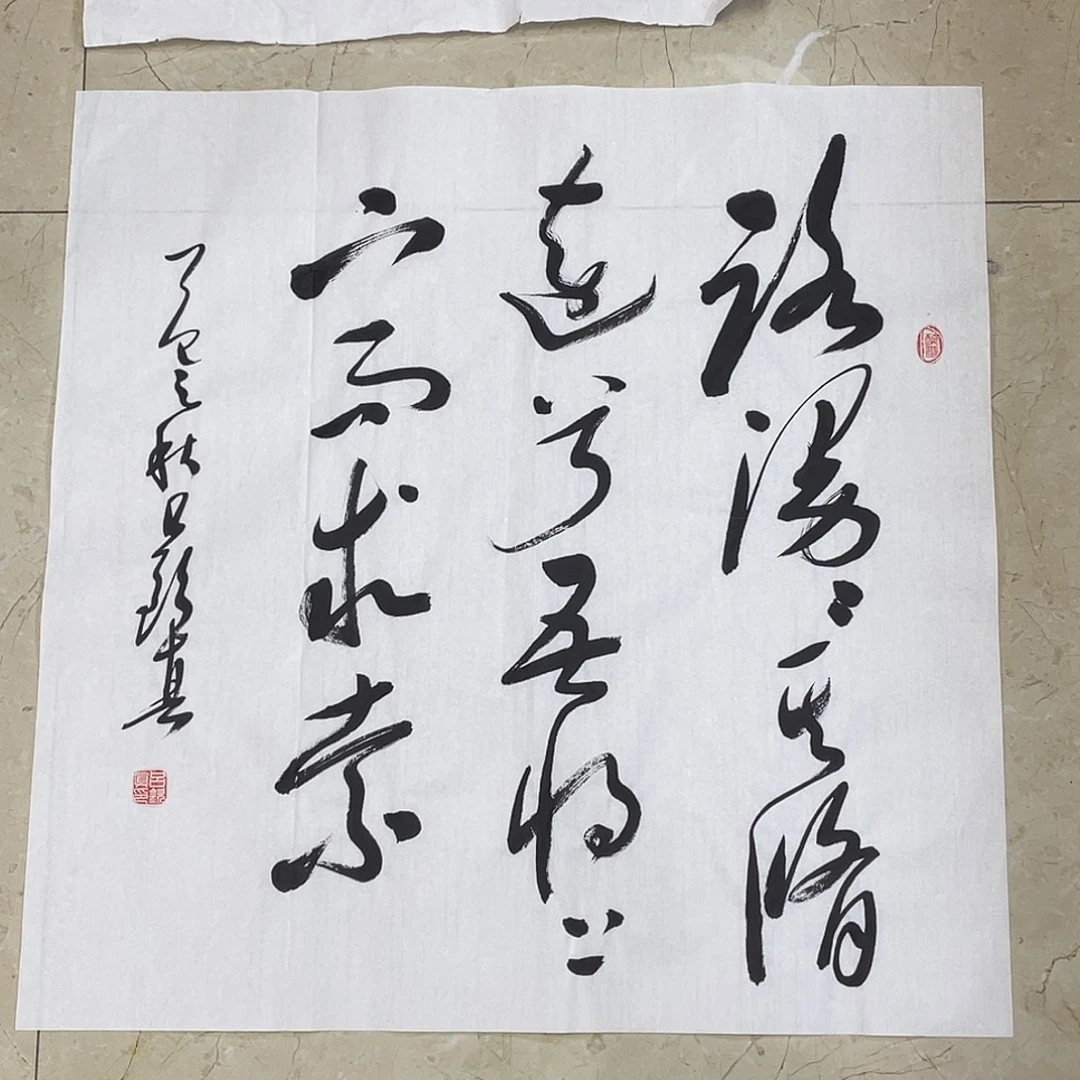 路漫漫其脩
遠兮吾将上
下而求索
丁酉之秋吕真